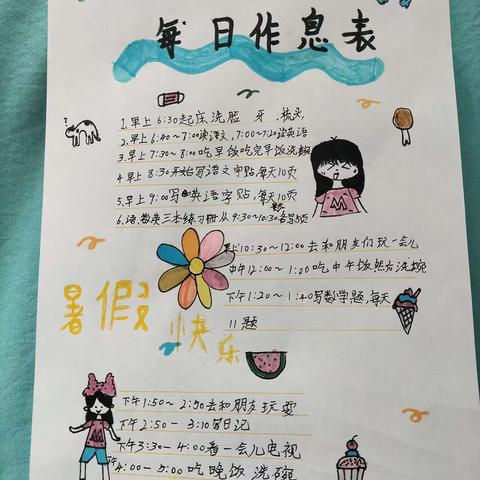 每日作息表
1.早上6:30起床洗脸 牙,梳头,
2.早上6:40~7:00读语文,7:00~7:20读英语
3.早上7:30~8:00吃早饭吃完早饭洗碗
4早上8:30开始写语文字贴,每天10页
5.早上9:00写英语字贴,每天10页
6.语,数英三本练习册从9:30~10:30各写5页
早上10:30~12:00去和朋友们玩一会儿
中午12:00~1:00吃中午饭然后洗碗
下午1:20~1:40写数学题,每天
11题
暑假
快乐
下午1:50~2:50去和朋友玩耍
下午2:50-3:10写日记
下午3:30-4:00看一会儿电视
下午4:00-5:00吃晚饭洗碗
M
M